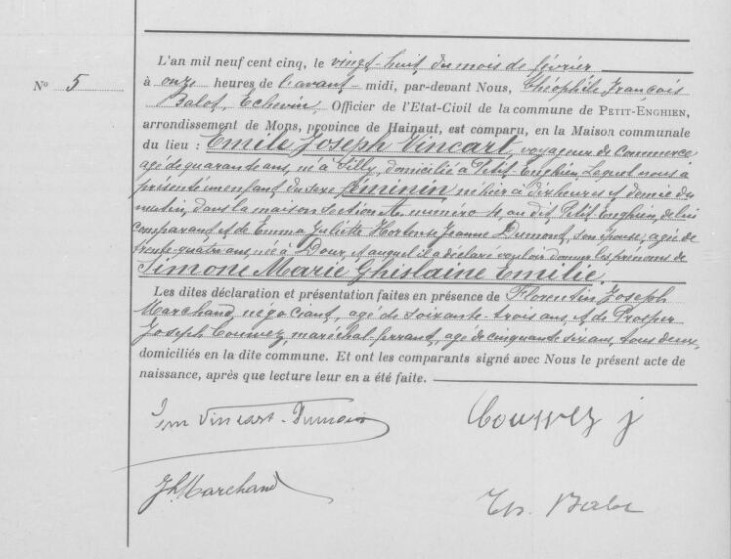 L'an mil neuf cent cinq, le vingt-huit du mois de février
N° 5
à onze heures de l'avant-midi, par-devant Nous, Théophile François
Balot, Echevin, Officier de l'Etat-Civil de la commune de PETIT-ENGHIEN,
arrondissement de Mons, province de Hainaut, est comparu, en la Maison communale
du lieu : Emile Joseph Vincart, voyageur de commerce
agé de quarante ans, né à Silly, domicilié à Petit-Enghien, Lequel nous a
présenté un enfant du sexe féminin né hier à dix heures et demie du
matin, dans la maison section A, numéro 4, au dit Petit-Enghien, de lui
comparant et de Emma Juliette Hortense Jeanne Dumont, son épouse, agée de
trente-quatre ans, née à Dour, et auquel il a déclaré vouloir donner les prénoms de
Simone Marie Ghislaine Emilie
Les dites déclaration et présentation faites en présence de Florentin Joseph
Marchand, négociant, agé de soixante-trois ans, et de Prosper
Joseph Couvez, maréchal-ferrant, agé de cinquante six ans, tous deux
domiciliés en la dite commune. Et ont les comparants signé avec Nous le présent acte de
naissance, après que lecture leur en a été faite.
Vincart-Dumont
J
Marchand
Th. Balot